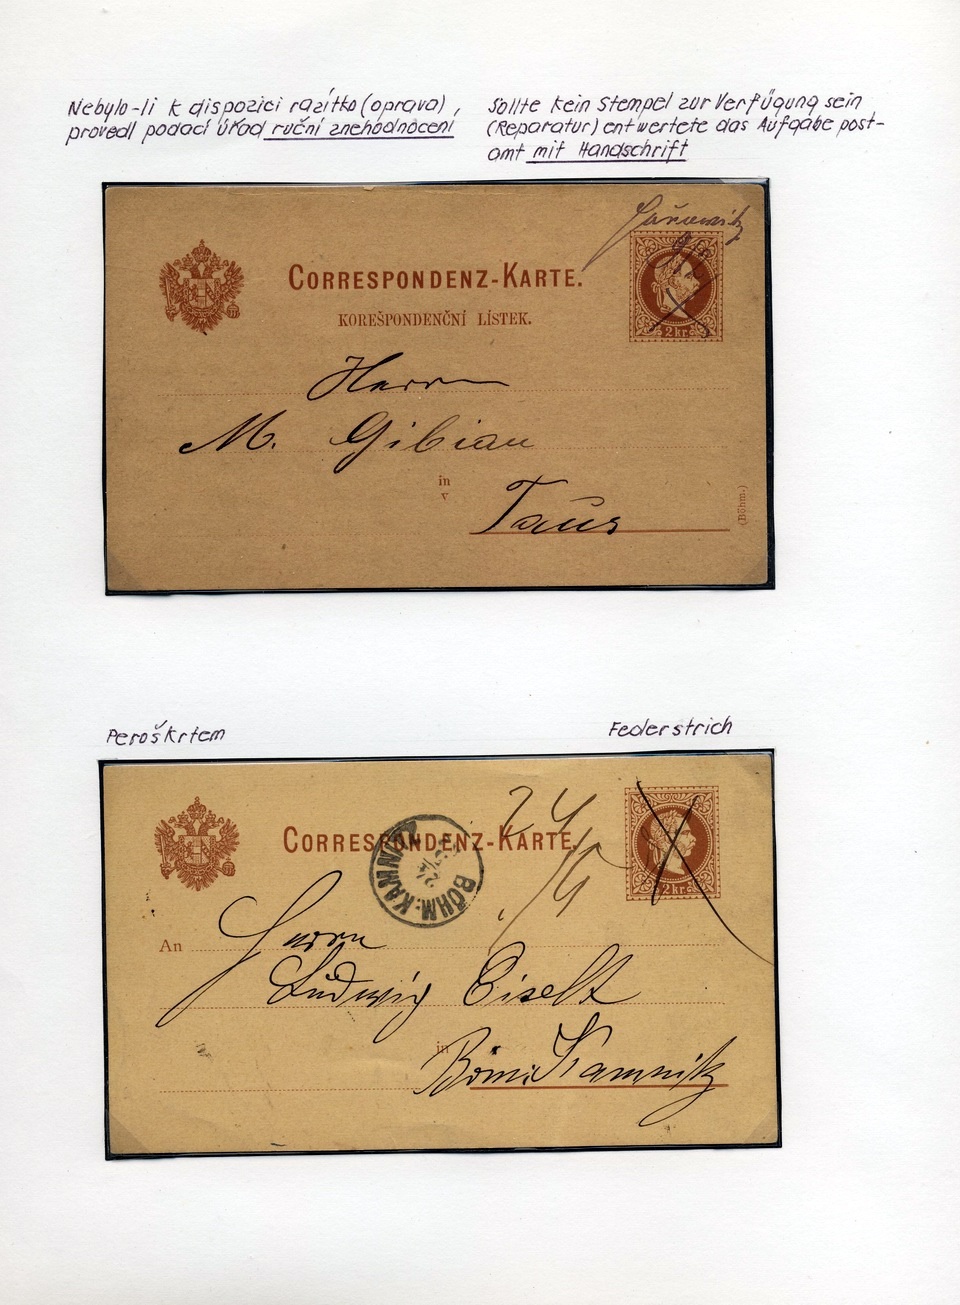 Nebylo-li k dispozici razítko (oprava),
provedl podací úřad ruční znehodnocení
Sollte kein Stempel zur Verfügung sein
(Reparatur) entwertete das Aufgabe post-
amt mit Handschrift
CORRESPONDENZ-KARTE.
KOREŠPONDENČNÍ LÍSTEK.
2 kr.
Herrn
M. Gibian
in
v
Taus
(Böhm.)
Peroškrtem
Federstrich
24/4
CORRESPONDENZ-KARTE.
2 kr.
BÖHM: KAMNITZ
24
An Herrn
Ludwig Eiselt
in
Böm. Kamnitz